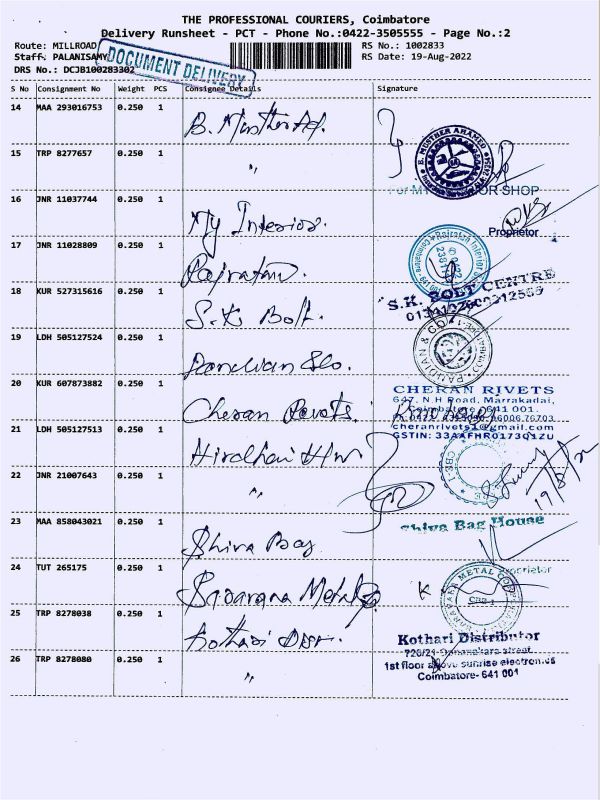 THE PROFESSIONAL COURIERS, Coimbatore
Delivery Runsheet - PCT - Phone No.:0422-3505555 - Page No.:2
Route: MILLROAD RS No.: 1002833
Staff: PALANISAMY RS Date: 19-Aug-2022
DRS No.: DCJB100283302
DOCUMENT DELIVERY
S No Consignment No Weight PCS Consignee Details Signature
14 MAA 293016753 0.250 1
B. MUSTHER AHAMED
15 TRP 8277657 0.250 1 "
For MY SHOP
16 JNR 11037744 0.250 1 My Interior.
Proprietor
17 JNR 11028809 0.250 1 Rajratan.
18 KUR 527315616 0.250 1 S.K. Bolt.
S.K. BOLT CENTRE
19 LDH 505127524 0.250 1
PANDIAN & CO
20 KUR 607873882 0.250 1 Cheran Rivets.
CHERAN RIVETS
647, N.H Road, Marrakadai,
Coimbatore - 641 001.
cheranrivets1@gmail.com
GSTIN: 33AAFHR0173Q1ZU
21 LDH 505127513 0.250 1
22 JNR 21007643 0.250 1 "
19/8/22
23 MAA 858043021 0.250 1 Shiva Bag
Shiva Bag House
Proprietor
24 TUT 265175 0.250 1
25 TRP 8278038 0.250 1 Kothari Distr.
Kothari Distributor
1st floor above sunrise electronics
Coimbatore- 641 001
26 TRP 8278080 0.250 1 "